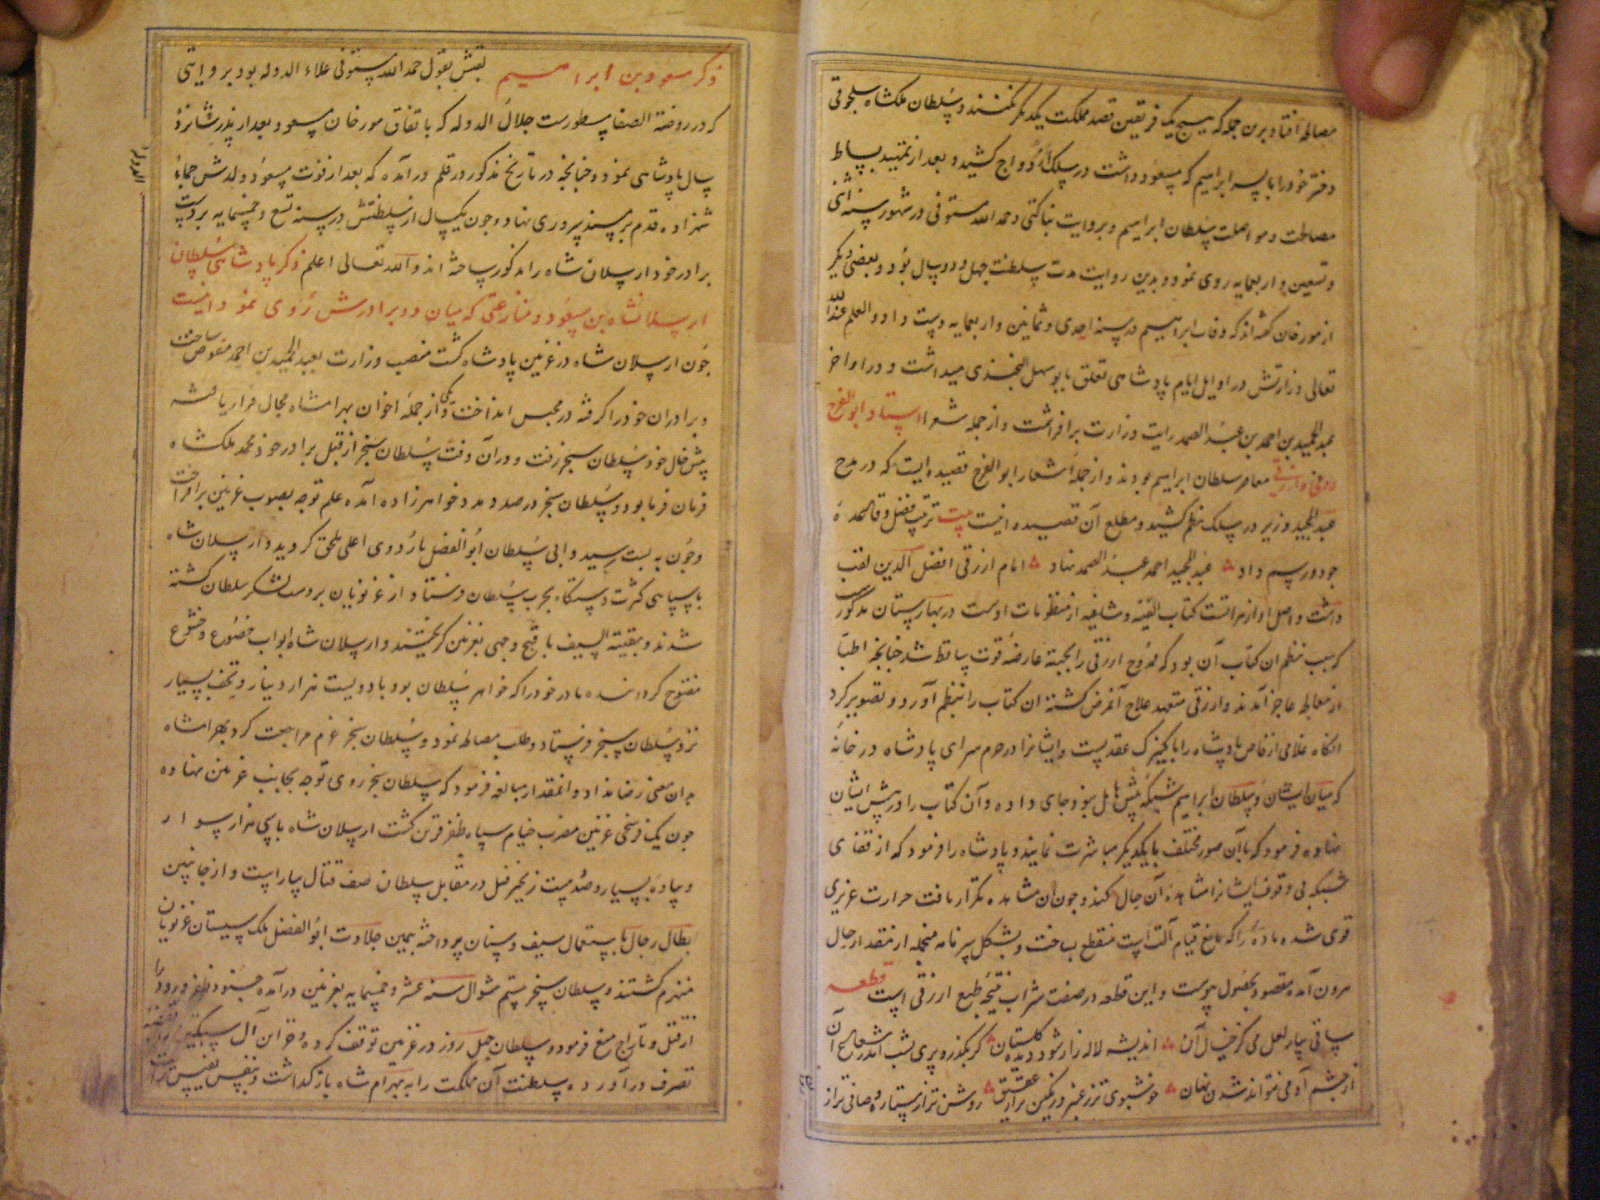 مصالحه افتاد برین جمله که هیچ یک فریقین قصد مملکت یکدیگر نکنند و سلطان ملکشاه سلجوقی
دختر خود را با پسر ابراهیم که مسعود داشت در سلک ازدواج کشید و بعد از تمهید بساط
مصالحت و مواصلت سلطان ابراهیم و بروایت بناکتی و حمد الله مستوفی در شهور سنه اثنی
و تسعین و اربعمایه روی نمود و بدین روایت مدت سلطنت چهل و دو سال بود و بعضی دیگر
از مورخان گفته‌اند که وفات ابراهیم در سنه احدی و ثمانین و اربعمایه دست داد و العلم عند الله
تعالی وزارتش در اوایل ایام پادشاهی تعلق بابو سهل الخجندی میداشت و در اواخر
عبد الحمید بن احمد بن عبد الصمد رایت وزارت برافراشت و از جمله شعرا استاد ابو الفرج
رونی و ازرقی معاصر سلطان ابراهیم بودند و از جمله اشعار ابو الفرج قصیده ایست که در مدح
عبد الحمید وزیر در سلک نظم کشید و مطلع آن قصیده اینست بیت ترتیب فضل و قاعده
جود و رسم داد عبد الحمید احمد عبد الصمد نهاد امام ازرقی افضل الدین لقب
داشت و اصل او از هراتست کتاب الفیه و شلفیه از منظومات اوست در بهارستان مذکور
که سبب نظم ان کتاب آن بود که ممدوح ازرقی را بجهة عارضه قوت ساقط شد چنانچه اطبا
از معالجه عاجز آمدند و ازرقی متعهد علاج آنمرض گشته ان کتاب را بنظم آورد و تصویر کرد
انکاه غلامی از خاص پادشاه را با کنیزک عقد بست و ایشانرا در حرم سرای پادشاه در خانه
که میان ایشان و سلطان ابراهیم شبکه بیش حایل نبود جای داده و آن کتاب را در پیش ایشان
نهاده فرمود که با آن صور مختلف با یکدیگر مباشرت نمایند و پادشاه را فرمود که از قفای
شبکه بی وقوف ایشانرا مشاهده آن حال کند و چون ان مشاهده تکرار یافت حرارت غریزی
قوی شده ماده را که مانع قیام آلت است منقطع ساخت و بشکل
برون آمده مقصود بحصول پیوست و این قطعه در صفت شراب نتیجه طبع ازرقی است قطعه
ساقی بیار لعل می کز خیال آن اندیشه لاله زار شود دیده گلستان گر بگذرد پری بشب اندر شعاع آن
از چشم آدمی نتواند شدن نهان خوشبوی تر ز عنبر و رنگین تر از عقیق روشن تر از ستاره و صافی تر از
ذکر مسعود بن ابراهیم لقبش بقول حمد الله مستوفی علاء الدوله بود بروایتی
که در روضة الصفا مسطورست جلال الدوله که باتفاق مورخان مسعود بعد از پدر شانزده
سال پادشاهی نمود و چنانچه در تاریخ مذکور در قلم درآمده که بعد از فوت مسعود ولدش
شهزاده قدم بر مسند سروری نهاد و چون یکسال از سلطنتش در سنه تسع و خمسمایه بر دست
برادر خود ارسلان شاه را مذکور ساخته اند و الله تعالی اعلم ذکر پادشاهی سلطان
ارسلانشاه بن مسعود و منازعتی که میان دو برادرش روی نمود اینست
چون ارسلان شاه در غزنین پادشاه گشت منصب وزارت بعبد الحمید بن احمد مفوض ساخت
و برادران خود را گرفته در محبس انداخت و یکی از جمله اخوان بهرامشاه مجال فرار یافته
پیش خال خود سلطان سنجر رفت و در آن وقت سلطان سنجر از قبل برادر خود محمد ملکشاه
فرمان فرما بود و سلطان سنجر در صدد مدد خواهرزاده آمده علم توجه بصوب غزنین برافراخت
و چون به بست رسید والی سلطان ابو الفضل باردوی اعلی ملحق گردید و ارسلان شاه
با سپاهی کثرت دستگاه بحرب سلطان فرستاد از غزنویان بر دست لشکر سلطان گشته
شدند و بقیة السیف باقبح وجهی بغزنین گریختند و ارسلان شاه ابواب خضوع و خشوع
مفتوح گردانیده مادر خود را که خواهر سلطان بود با دویست هزار دینار و تحف بسیار
نزد سلطان سنجر فرستاد و طلب مصالحه نمود و سلطان سنجر عزم مراجعت کرد بهرامشاه
بدان معنی رضا نداد و انمقدار مبالغه فرمود که سلطان سنجر روی توجه بجانب غزنین نهاده
چون یک فرسخی غزنین مضرب خیام سپاه ظفر قرین گشت ارسلان شاه با سی هزار سوار
و پیاده بسیار و صد و بیست زنجیر فیل در مقابل سلطان صف قتال بیاراست و از جانبین
ابطال رجال باستعمال سیف و سنان پرداخته بیمن جلادت ابو الفضل ملک سیستان غزنویان
منهزم گشتند و سلطان سنجر بیستم شوال سنه عشر و خمسمایه بغزنین درآمده
از قتل و تاراج منع فرمود و سلطان چهل روز در غزنین توقف کرده و خزاین آل سبکتکین
تصرف درآورده سلطنت آن مملکت را به بهرام شاه بازگذاشت و بنفس نفیس